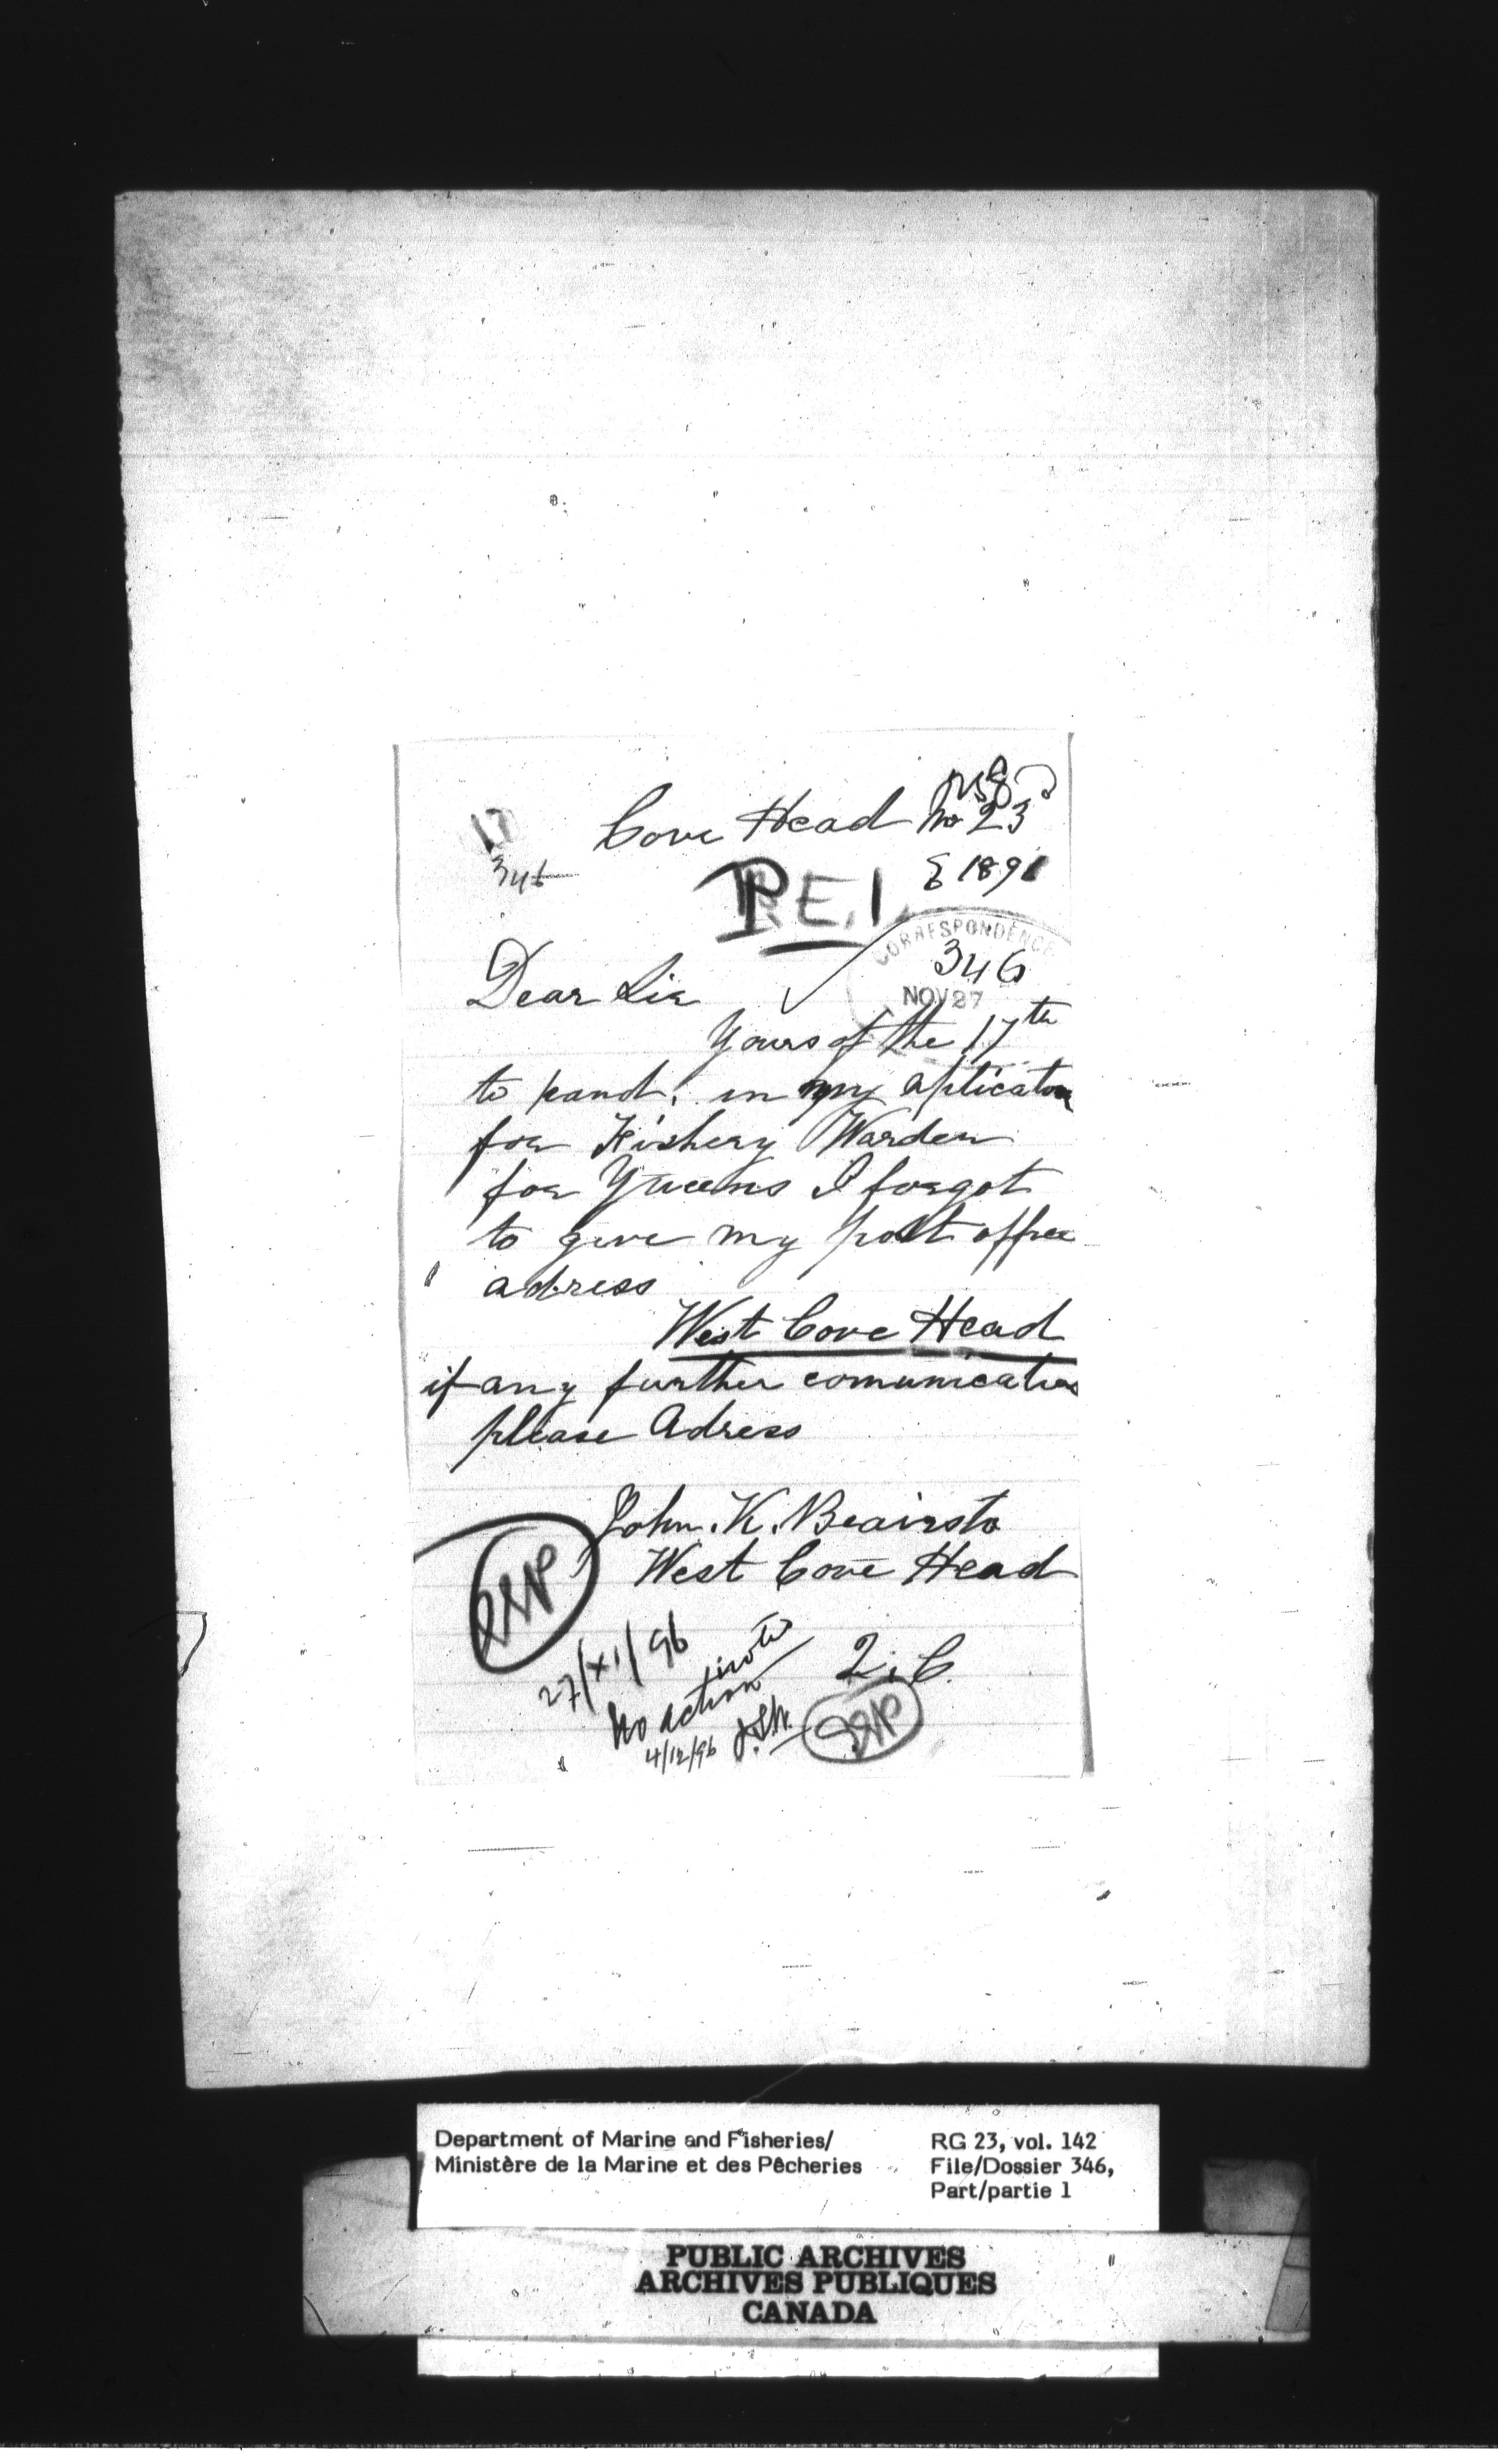 Cove Head No 23
17
346
1896
P.E.I.
CORRESPONDENCE
346
NOV 27
Dear Sir
Yours of the 17th
to hand. in my aplication
for Fishery Warden
for Queens I forgot
to give my post office
adress
West Cove Head
if any further comunication
please Adress
John. K. Beairsto
West Cove Head
27/XI/96
No action
4/12/96
Q. C.
Department of Marine and Fisheries/
Ministère de la Marine et des Pêcheries
RG 23, vol. 142
File/Dossier 346,
Part/partie 1
PUBLIC ARCHIVES
ARCHIVES PUBLIQUES
CANADA